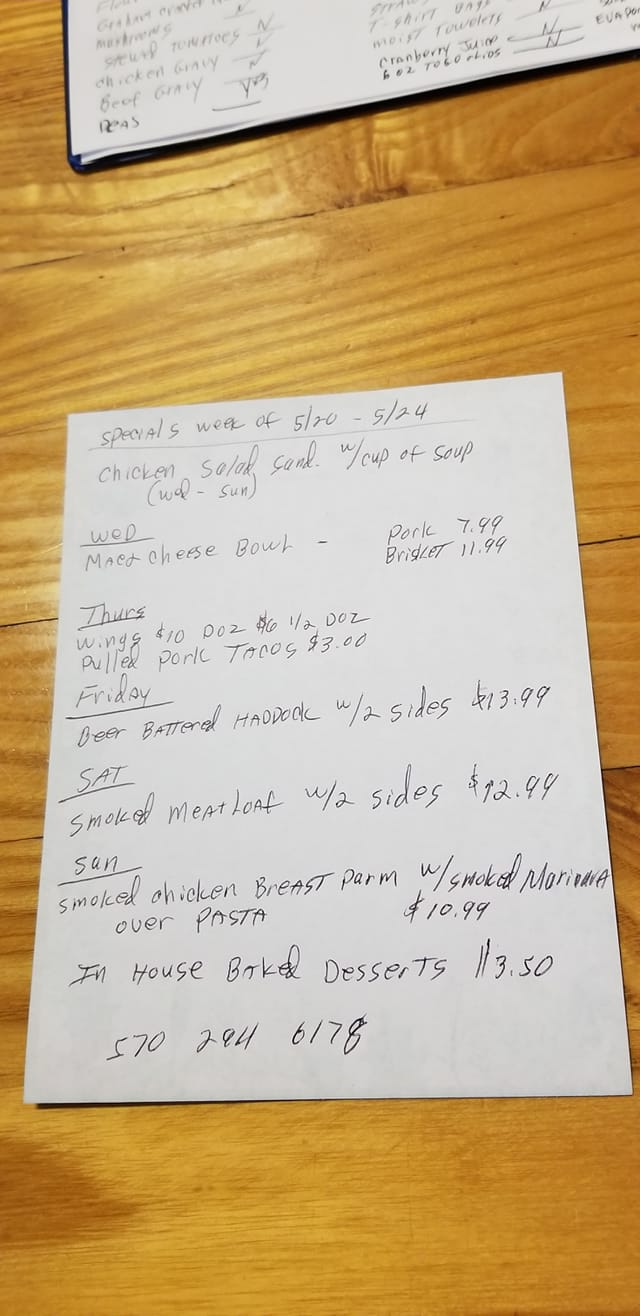 Graham cracker
N
mushrooms
stewed tomatoes N
chicken Gravy N
Beef Gravy Yes
Peas
T-shirt bags
moist Towelets N
cranberry Juice N
6 oz TOGO clids N
specials week of 5/20 - 5/24
chicken salad sand. w/cup of soup
(wed - sun)
WED
Mac & cheese Bowl - Pork 7.99
Brisket 11.99
Thurs
Wings $10 DOZ $6 1/2 DOZ
Pulled Pork TACOS $3.00
Friday
Beer Battered HADDOCK w/2 sides $13.99
SAT
Smoked Meatloaf w/2 sides $12.99
Sun
Smoked chicken Breast Parm w/smoked Marinara
over PASTA $10.99
In House Baked Desserts $3.50
570 294 6178